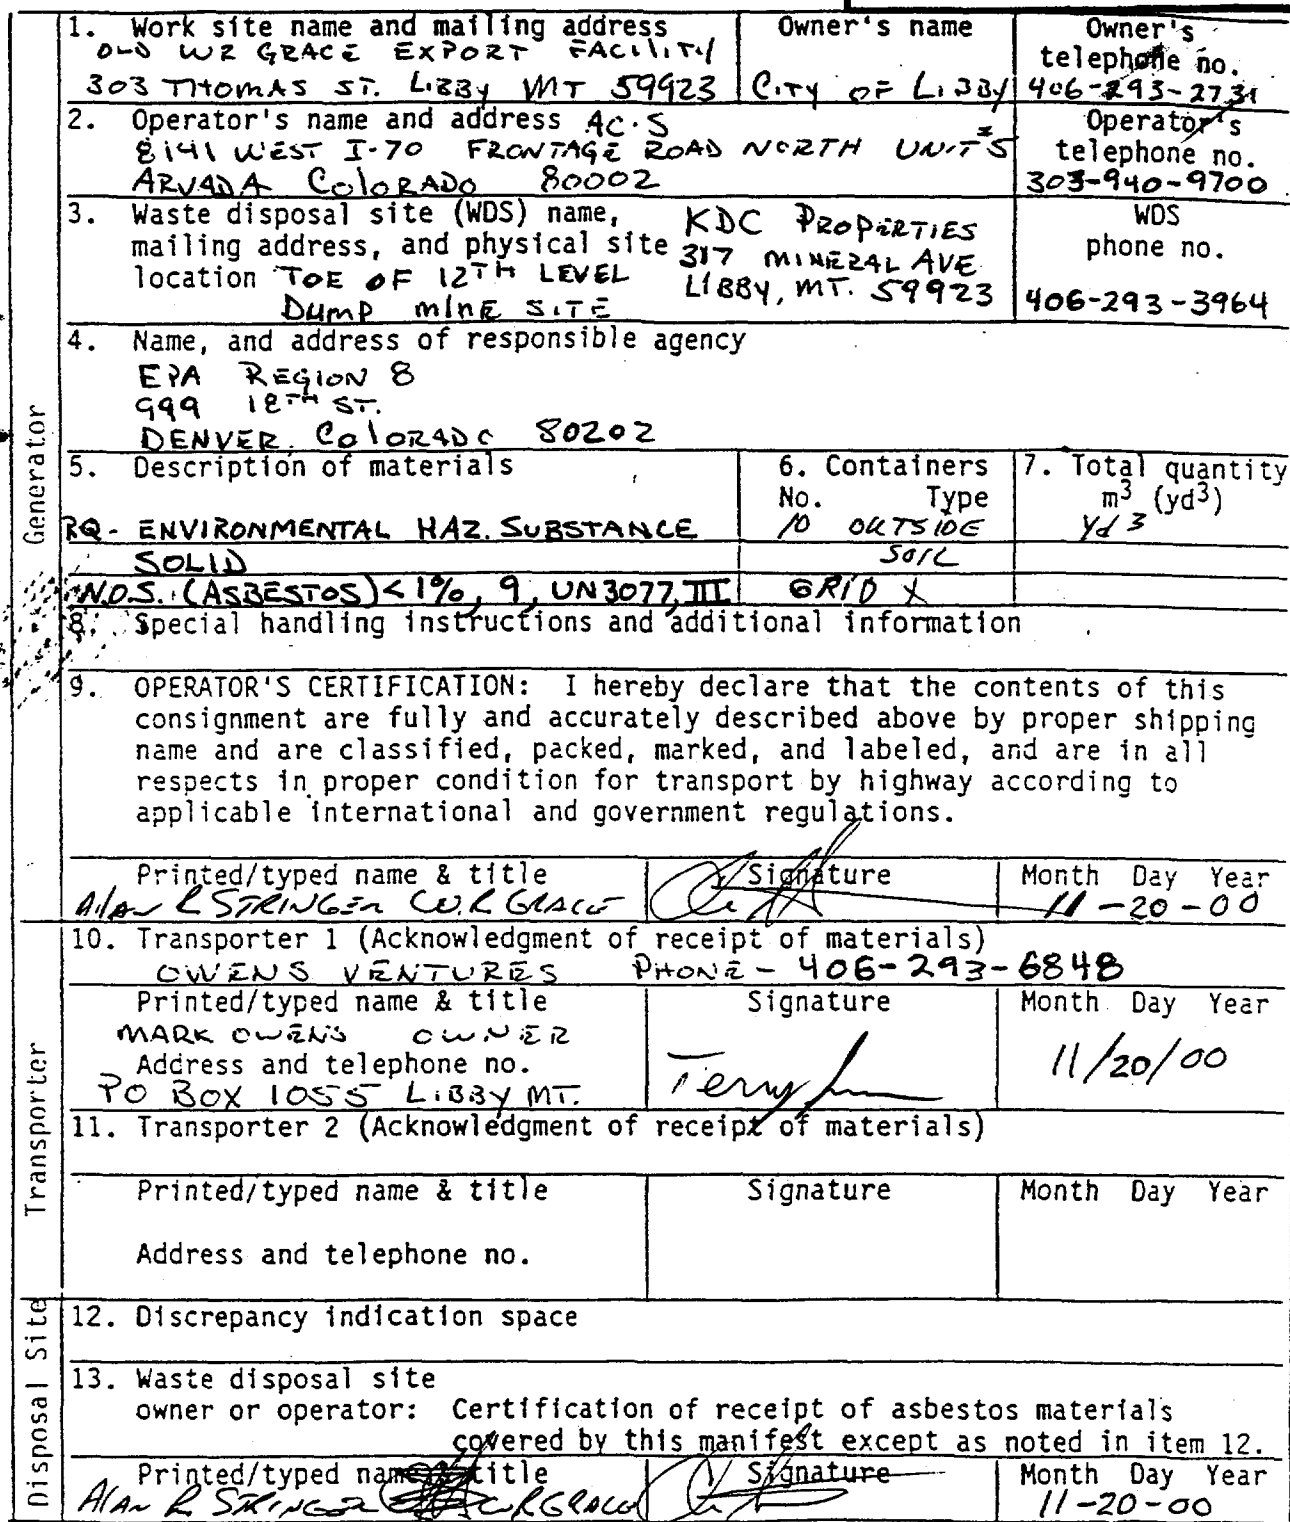 1. Work site name and mailing address
OLD WR GRACE EXPORT FACILITY
303 THOMAS ST. LIBBY MT 59923
Owner's name
CITY OF LIBBY
Owner's
telephone no.
406-293-2731
2. Operator's name and address AC.S
8141 WEST I-70 FRONTAGE ROAD NORTH UNIT 5
ARVADA COLORADO 80002
Operator's
telephone no.
303-940-9700
3. Waste disposal site (WDS) name,
mailing address, and physical site
location TOE OF 12TH LEVEL
DUMP MINE SITE
KDC PROPERTIES
317 MINERAL AVE
LIBBY, MT. 59923
WDS
phone no.
406-293-3964
4. Name, and address of responsible agency
EPA REGION 8
999 18TH ST.
DENVER. COLORADO 80202
Generator
5. Description of materials
6. Containers
No. Type
7. Total quantity
m3 (yd3)
RQ- ENVIRONMENTAL HAZ. SUBSTANCE
10 OUTSIDE
Yd 3
SOLID
SOIL
N.O.S. (ASBESTOS) < 1%, 9, UN3077, III
GRID X
8. Special handling instructions and additional information
9. OPERATOR'S CERTIFICATION: I hereby declare that the contents of this
consignment are fully and accurately described above by proper shipping
name and are classified, packed, marked, and labeled, and are in all
respects in proper condition for transport by highway according to
applicable international and government regulations.
Printed/typed name & title
Alan R STRINGER W.R GRACE
Signature
Month Day Year
11-20-00
Transporter
10. Transporter 1 (Acknowledgment of receipt of materials)
OWENS VENTURES PHONE - 406-293-6848
Printed/typed name & title
MARK OWENS OWNER
Address and telephone no.
PO BOX 1055 LIBBY MT.
Signature
Terry
Month Day Year
11/20/00
11. Transporter 2 (Acknowledgment of receipt of materials)
Printed/typed name & title
Signature
Month Day Year
Address and telephone no.
Disposal Site
12. Discrepancy indication space
13. Waste disposal site
owner or operator: Certification of receipt of asbestos materials
covered by this manifest except as noted in item 12.
Printed/typed name & title
Alan R STRINGER W R GRACE
Signature
Month Day Year
11-20-00